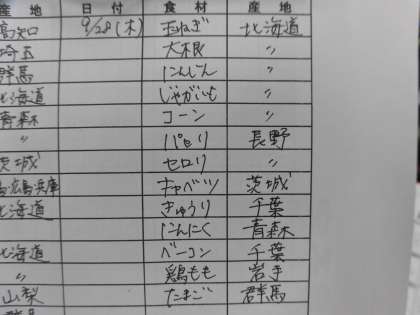 産地 日付 食材 産地
高知 9/28(木) 玉ねぎ 北海道
埼玉 大根 〃
群馬 にんじん 〃
北海道 じゃがいも 〃
青森 コーン 〃
〃 パセリ 長野
茨城 セロリ 〃
広島兵庫 キャベツ 茨城
北海道 きゅうり 千葉
にんにく 青森
北海道 ベーコン 千葉
〃 鶏もも 岩手
山梨 たまご 群馬